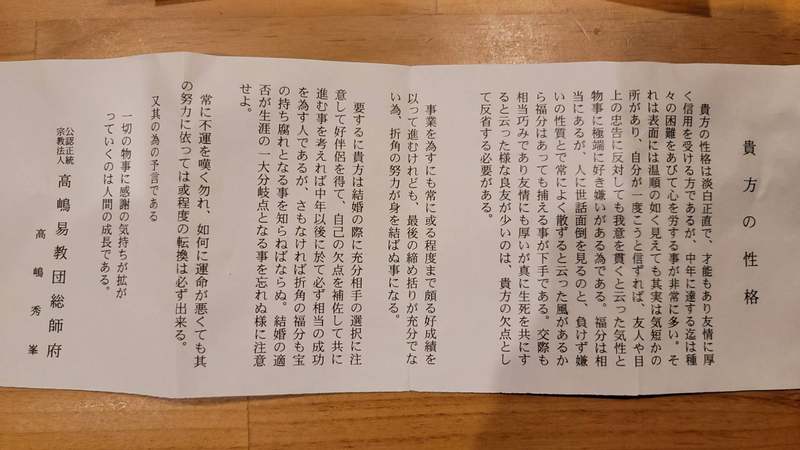 貴方の性格
貴方の性格は淡白正直で、才能もあり友情に厚
く信用を受ける方であるが、中年に達する迄は種
々の困難をあびて心を労する事が非常に多い。そ
れは表面には温順の如く見えても其実は気短かの
所があり、自分が一度こうと信ずれば、友人や目
上の忠告に反対しても我意を貫くと云った気性と
物事に極端に好き嫌いがある為である。福分は相
当にあるが、人に世話面倒を見るのと、負けず嫌
いの性質とで常によく散ずると云った風があるか
ら福分はあっても捕える事が下手である。交際も
相当巧みであり友情にも厚いが真に生死を共にす
ると云った様な良友が少いのは、貴方の欠点とし
て反省する必要がある。
事業を為すにも常に或る程度まで頗る好成績を
以って進むけれども、最後の締め括りが充分でな
い為、折角の努力が身を結ばぬ事になる。
要するに貴方は結婚の際に充分相手の選択に注
意して好伴侶を得て、自己の欠点を補佐して共に
進む事を考えれば中年以後に於て必ず相当の成功
を為す人であるが、さもなければ折角の福分も宝
の持ち腐れとなる事を知らねばならぬ。結婚の適
否が生涯の一大分岐点となる事を忘れぬ様に注意
せよ。
常に不運を嘆く勿れ、如何に運命が悪くても其
の努力に依っては或程度の転換は必ず出来る。
又其の為の予言である
一切の物事に感謝の気持ちが拡が
っていくのは人間の成長である。
公認正統
宗教法人
高嶋易教団総師府
高嶋秀峯